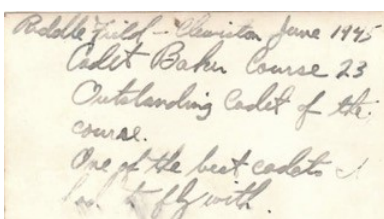 Riddle Field - Clewiston June 1945
Cadet Baker Course 23
Outstanding Cadet of the
course.
One of the best cadets I
had to fly with.